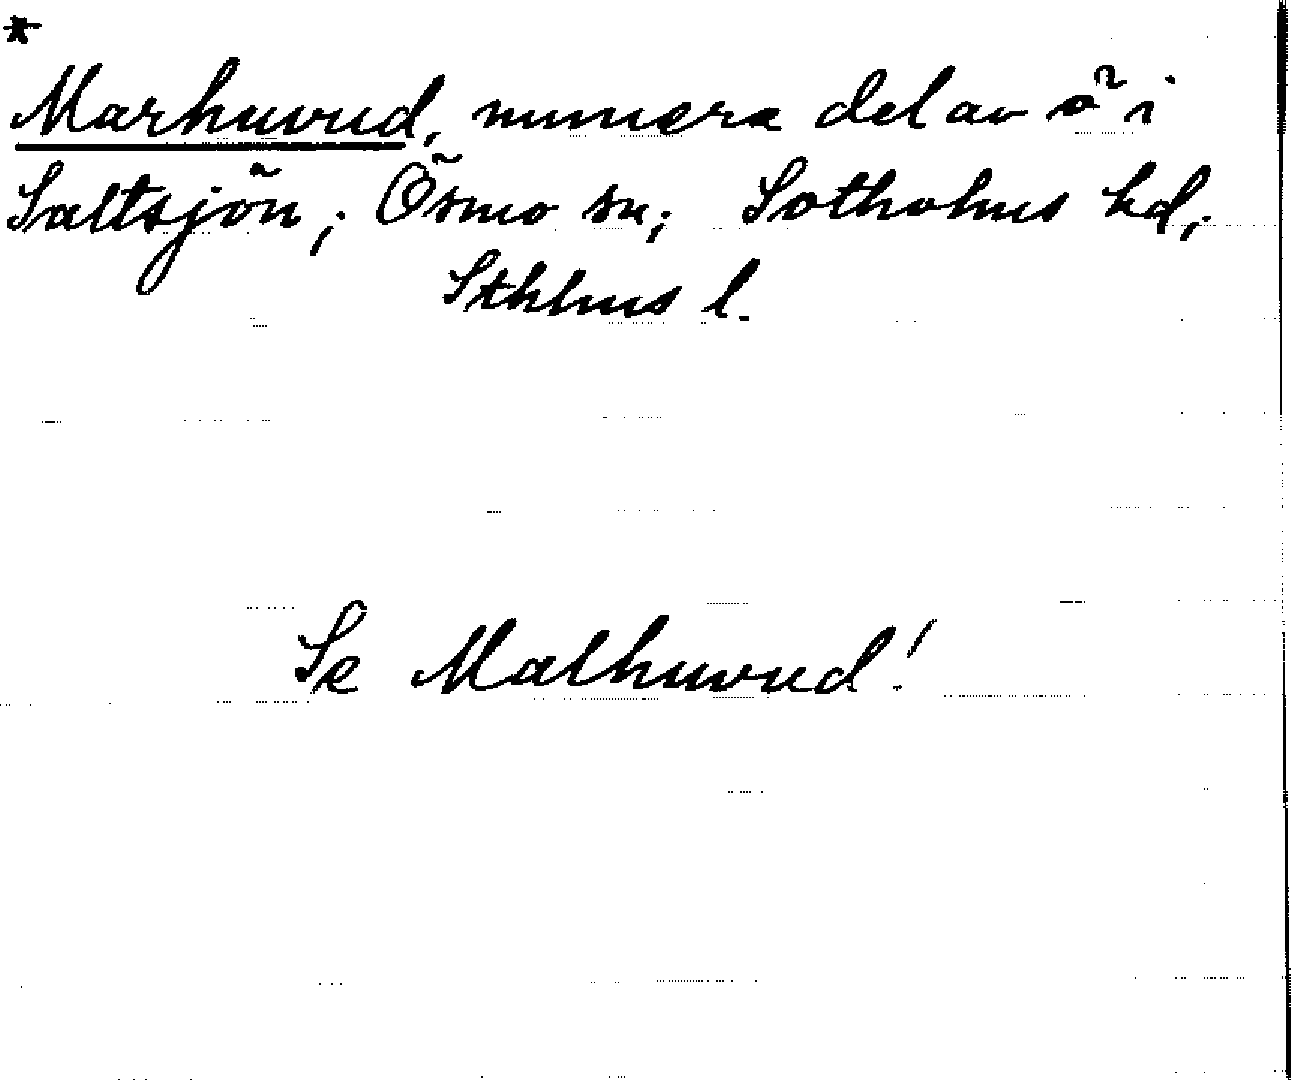 *
Marhuvud, numera del av ö i
Saltsjön, Ösmo sn, Sotholms hd,
Sthlms l.
Se Malhuvud!